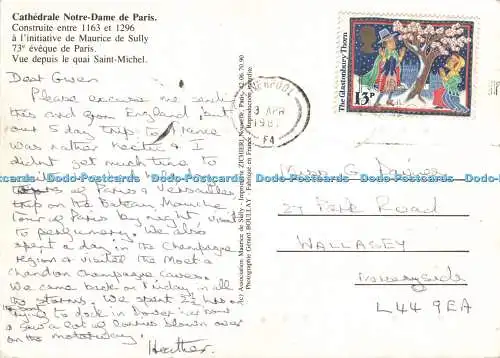 Cathédrale Notre-Dame de Paris.
Construite entre 1163 et 1296
à l'initiative de Maurice de Sully
73e évêque de Paris.
Vue depuis le quai Saint-Michel.
Dear Gwen
Please excuse me sending
this card from England, but
our 5 day trip to France
was rather hectic & I
didn't get much time to
of Paris & Versailles
trip on the Bateau Mouche
tour of Paris by night, visit
to perfumery. We also
spent a day in the Champagne
region & visited the Moet &
Chandon Champagne Caves.
We came back on Friday in all
the storms. We spent 2½ hrs
trying to dock in Dover & now
& saw a lot of lorries blown over
on the motorway.
Heather.
Association Maurice de Sully - Imprimerie ZICHIERI, Nouvelle, Paris, 42.06.70.90
Photographie Gérard BOULLAY - Fabriqué en France - Reproduction interdite
The Glastonbury Thorn
13P
LIVERPOOL
3 APR
198
FA
G. Davies
27 Park Road
WALLASEY
Merseyside
L44 9EA
Dodo-Postcards Dodo-Postcards Dodo-Postcards Dodo-Postcards Dodo-Postcards